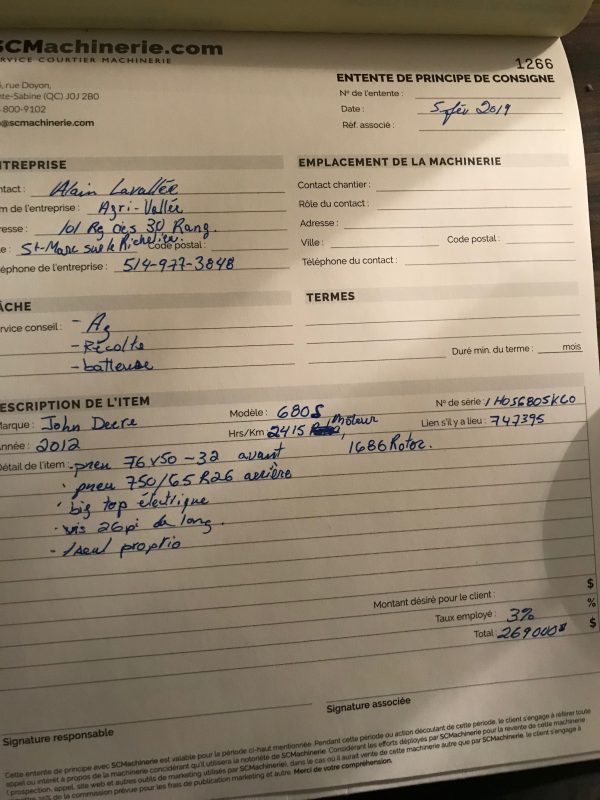 SCMachinerie.com
SERVICE COURTIER MACHINERIE
1266
rue Doyon,
te-Sabine (QC) J0J 2B0
800-9102
@scmachinerie.com
ENTENTE DE PRINCIPE DE CONSIGNE
N° de l'entente :
Date : 5 fév 2019
Réf. associé :
NTREPRISE
ntact : Alain Lavallée
m de l'entreprise : Agri-Vallée
esse : 101 Rg des 30 Rang.
e : St-Marc sur le Richelieu. Code postal :
éphone de l'entreprise : 514-977-3848
EMPLACEMENT DE LA MACHINERIE
Contact chantier :
Rôle du contact :
Adresse :
Ville : Code postal :
Téléphone du contact :
ÂCHE
rvice conseil : - Ag
- Récolte
- batteuse
TERMES
Duré min. du terme : mois
DESCRIPTION DE L'ITEM
Marque : John Deere
Modèle : 680S
N° de série : 1H0S680SKC0
Année : 2012
Hrs/Km 2415 moteur,
Lien s'il y a lieu : 747395
1686 Rotor.
Détail de l'item : - pneu 76x50-32 avant
· pneu 750/65R26 arrière
· big top électrique
· vis 26pi de long.
- 1 seul proprio
Montant désiré pour le client : $
Taux employé : 3% %
Total : 269000$ $
Signature responsable
Signature associée
Cette entente de principe avec SCMachinerie est valable pour la période ci-haut mentionnée. Pendant cette période ou action découlant de cette période, le client s'engage à référer toute
appel ou intérêt à propos de la machinerie considérant qu'il utilisera la notoriété de SCMachinerie. Considérant les efforts déployés par SCMachinerie pour la revente de cette machinerie
(prospection, appel, site web et autres outils de marketing utilisés par SCMachinerie), dans le cas où il aurait vente de cette machinerie autre que par SCMachinerie, le client s'engage à
% de la commission prévue pour les frais de publication marketing et autre. Merci de votre compréhension.